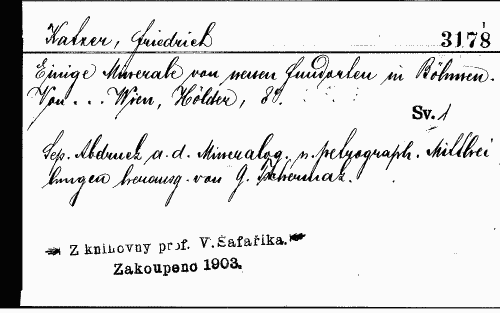 Katzer, Friedrich 3178
Einige Minerale von neuen Fundorten in Böhmen.
Von . . . Wien, Hölder, 8°.
Sv. 1
Sep. Abdruck a. d. Mineralog. u. petrograph. Mitthei
lungen herausg. von G. Tschermak.
Z knihovny prof. V. Šafaříka.
Zakoupeno 1903.